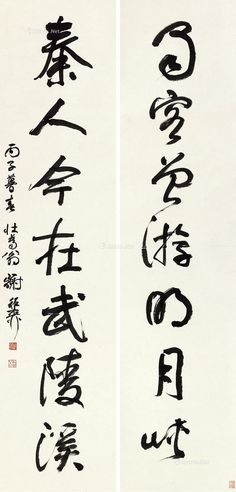 蜀客曾游明月峡
秦人今在武陵溪
丙子暮春 壮暮翁 谢稚柳